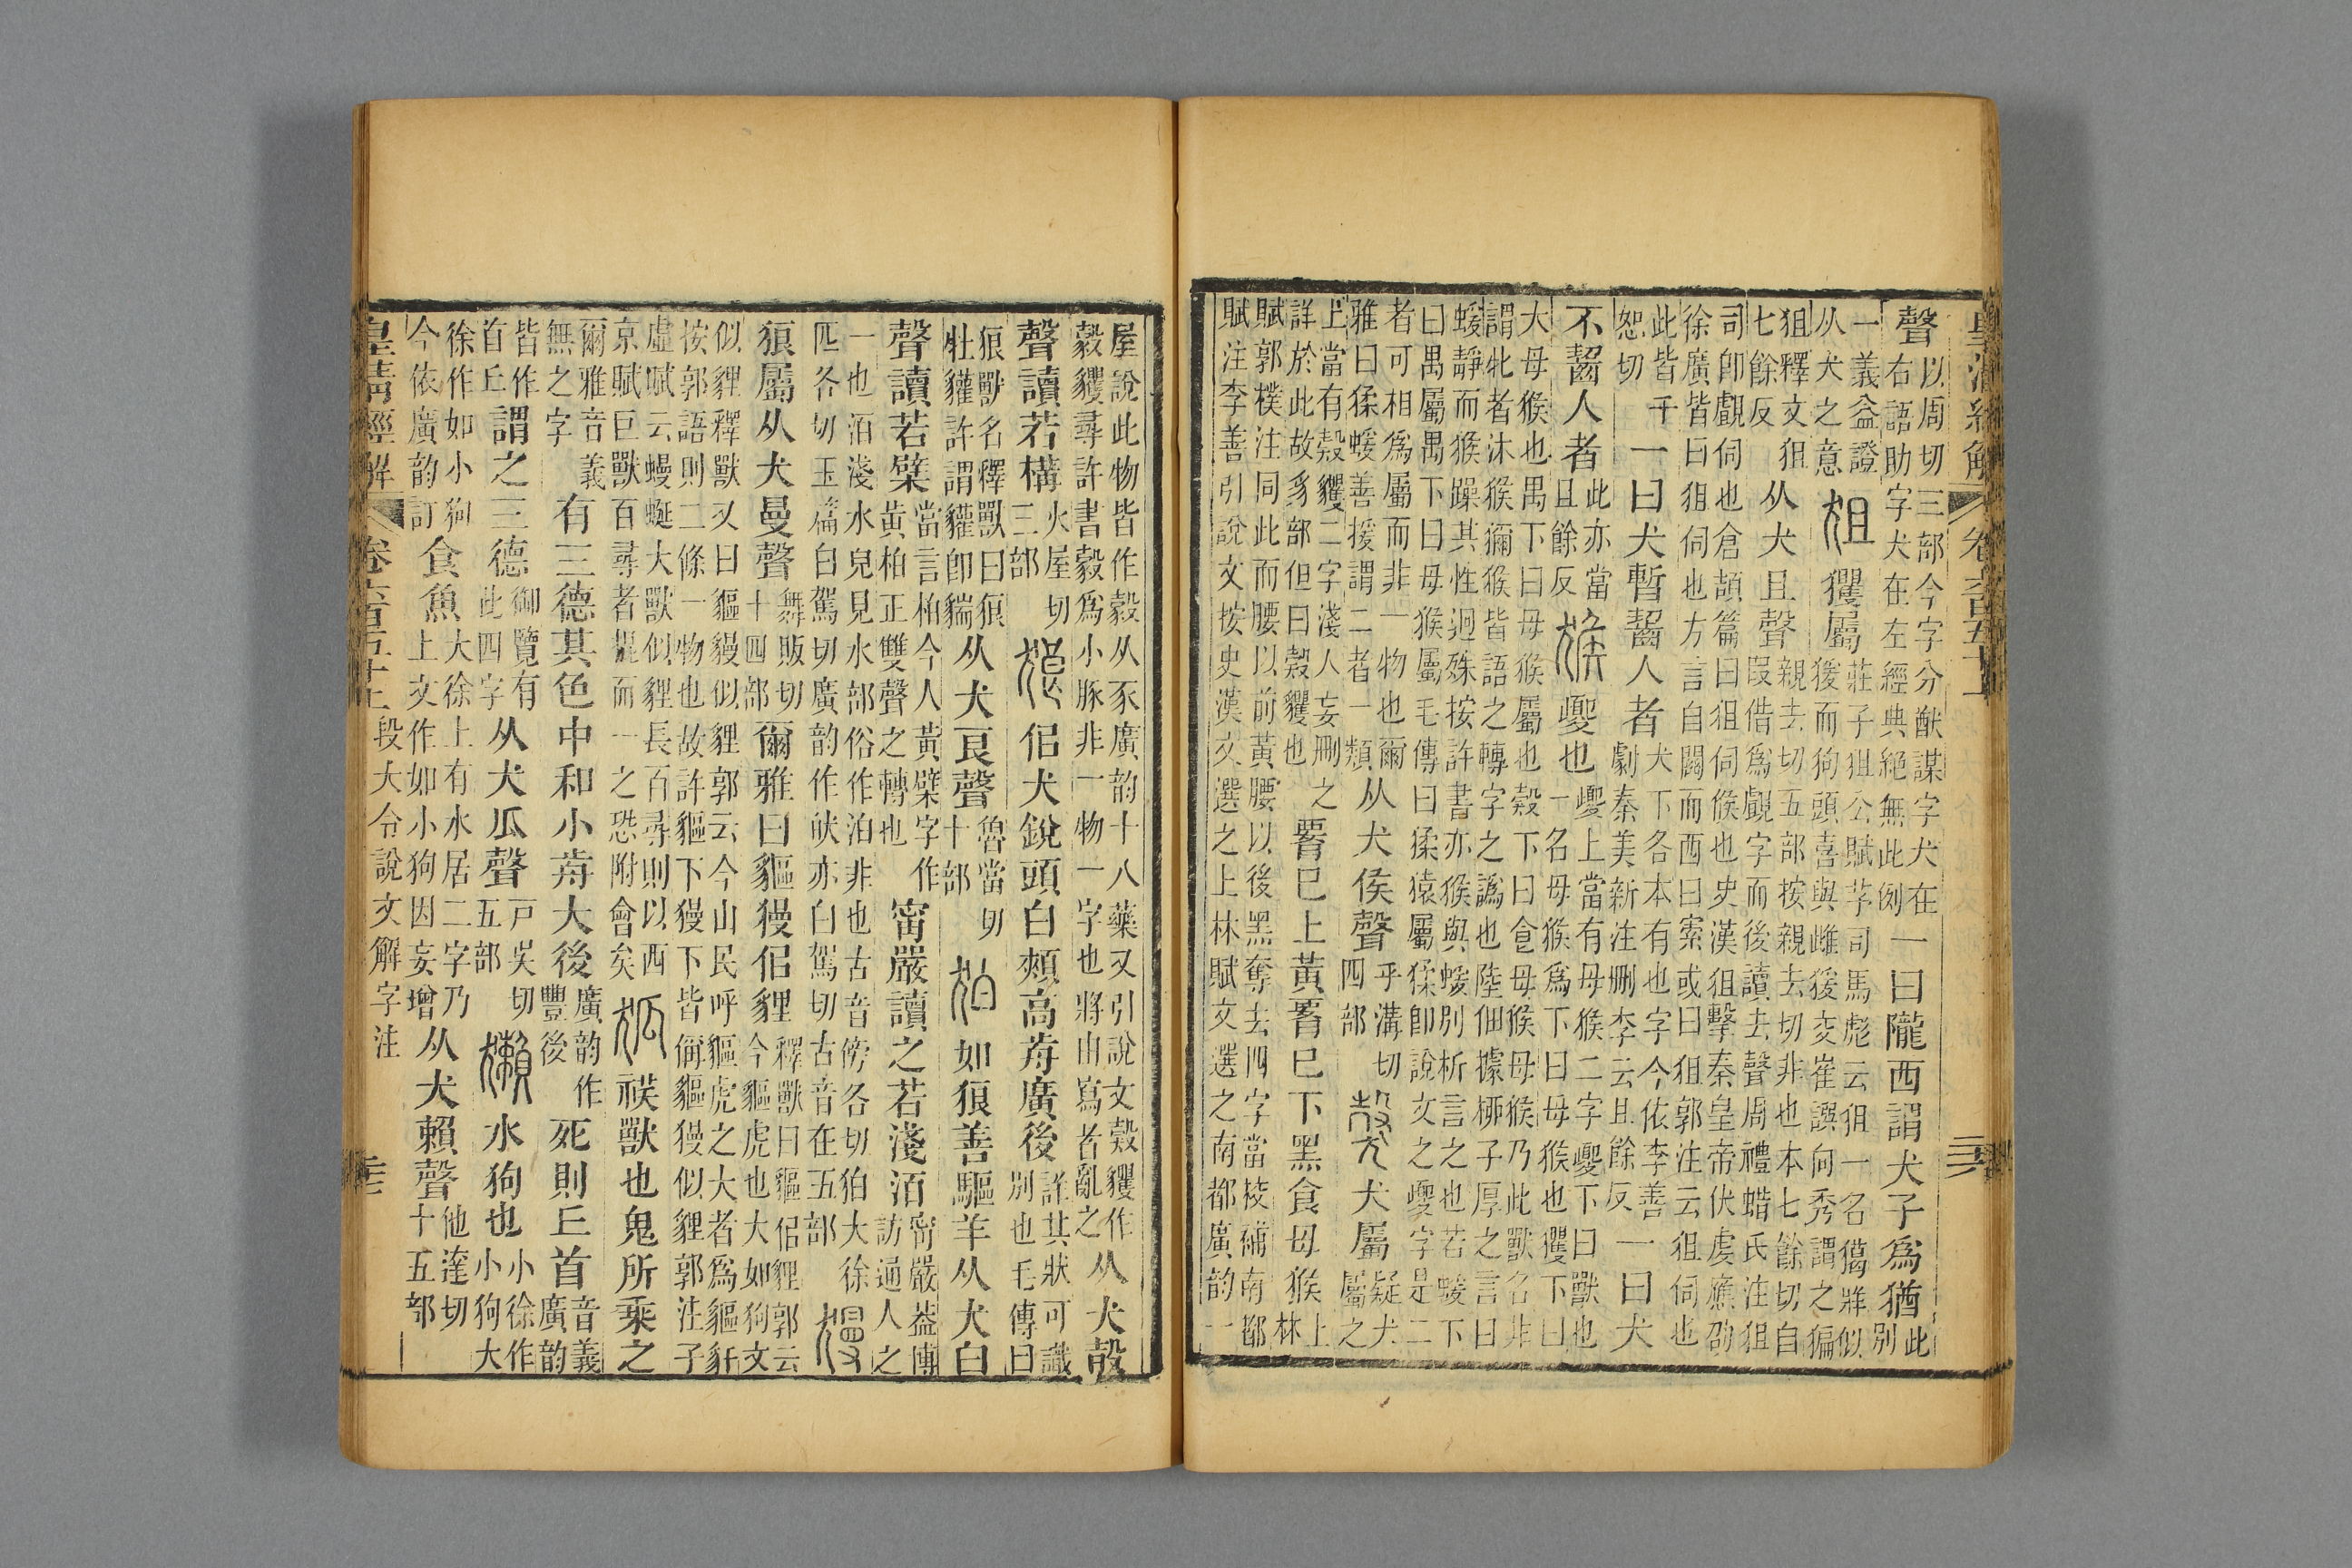 皇清經解 卷六百五十上 三六
聲以周切三部今字分猷謀字犬在右語助字犬在左經典絕無此例一曰隴西謂犬子爲猶此別
一義益證从犬之意狙玃屬莊子狙公賦芧司馬彪云狙一名獦牂似猨而狗頭喜與雌猨交崔譔向秀謂之猵
狙釋文狙七餘反从犬且聲親去切五部按親去切非也本七餘切自叚借爲覰字而後讀去聲周禮蜡氏注狙
司卽覰伺也倉頡篇曰狙伺候也史漢狙擊秦皇帝伏虔應劭徐廣皆曰狙伺也方言自關而西曰索或曰狙郭注云狙伺也
此皆千恕切一曰犬暫齧人者犬下各本有也字今依李善劇秦美新注刪李云且餘反一曰犬
不齧人者此亦當且餘反猴夒也夒上當有母猴二字夒下曰獸也一名母猴爲下曰母猴也玃下曰
大母猴也禺下曰母猴屬也㺉下曰食母猴母猴乃此獸名非謂牝者沐猴獼猴皆語之轉字之譌也陸佃據栁子厚之言曰
蝯靜而猴躁其性迥殊按許書亦猴與蝯別析言之也若蝯下曰禺屬禺下曰母猴屬毛傳曰猱猿屬猱卽說文之夒字是二
者可相爲屬而非一物也爾雅曰猱蝯善援謂二者一類从犬矦聲乎溝切四部㺉犬屬疑犬屬之
上當有㺉玃二字淺人妄刪之詳於此故豸部但曰㺉玃也䁂已上黃䁂已下黑食母猴上林
賦郭樸注同此而腰以前黃腰以後黑奪去四字當校補南都賦注李善引說文按史漢文選之上林賦文選之南都廣韵一
屋說此物皆作㲄从豕廣韵十八藥又引說文㺉玃作㲄玃尋許書㲄爲小豚非一物一字也將由寫者亂之从犬𣪊
聲讀若構火屋切三部狼佀犬銳頭白頰高歬廣後詳其狀可識別也毛傳曰
狼獸名釋獸曰狼牡貛許謂貛卽貒从犬良聲魯當切十部狛如狼善驅羊从犬白
聲讀若檗當言柏今人黃檗字作黃柏正雙聲之轉也甯嚴讀之若淺洦甯嚴葢博訪通人之
一也洦淺水皃見水部俗作泊非也古音傍各切狛大徐匹各切玉篇白駕切廣韵作㹮亦白駕切古音在五部獌
狼屬从犬曼聲舞販切十四部爾雅曰貙獌佀貍釋獸曰貙佀貍郭云今貙虎也大如狗文
似貍釋獸又曰貙獌似貍郭云今山民呼貙虎之大者爲貙豻按郭語則二條一物也故許貙下獌下皆偁貙獌似貍郭注子
虛賦云蟃蜒大獸似貍長百尋則以西京賦巨獸百尋者混而一之恐附會矣狐䄏獸也鬼所乘之
爾雅音義無之字有三德其色中和小歬大後廣韵作豐後死則丘首音義廣韵
皆作首丘謂之三德御覽有此四字从犬瓜聲戸吳切五部獺水狗也小徐作小狗大
徐作如小狗今依廣韵訂食魚大徐上有水居二字乃上文作如小狗因妄增从犬賴聲他達切十五部
皇清經解 卷六百五十上 段大令說文解字注 三七